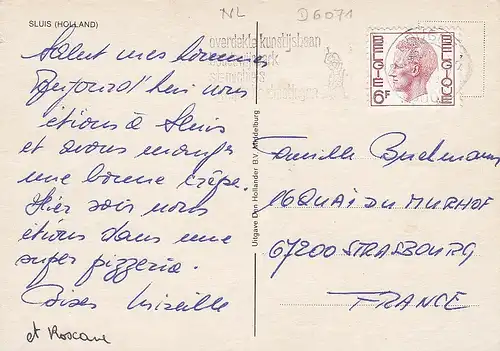 SLUIS (HOLLAND)
NL D6071
overdekte kunstijsbaan
BELGIË
BELGIQUE
6F
Salut mes
Aujourd'hui nous
étions à Sluis
et avons mangé
une bonne crêpe.
Hier soir nous
étions dans une
super pizzeria.
Bises Mireille
et Roxane
Uitgave Den Hollander B.V. Middelburg
Famille
16 QUAI DU MURHOF
67200 STRASBOURG
FRANCE